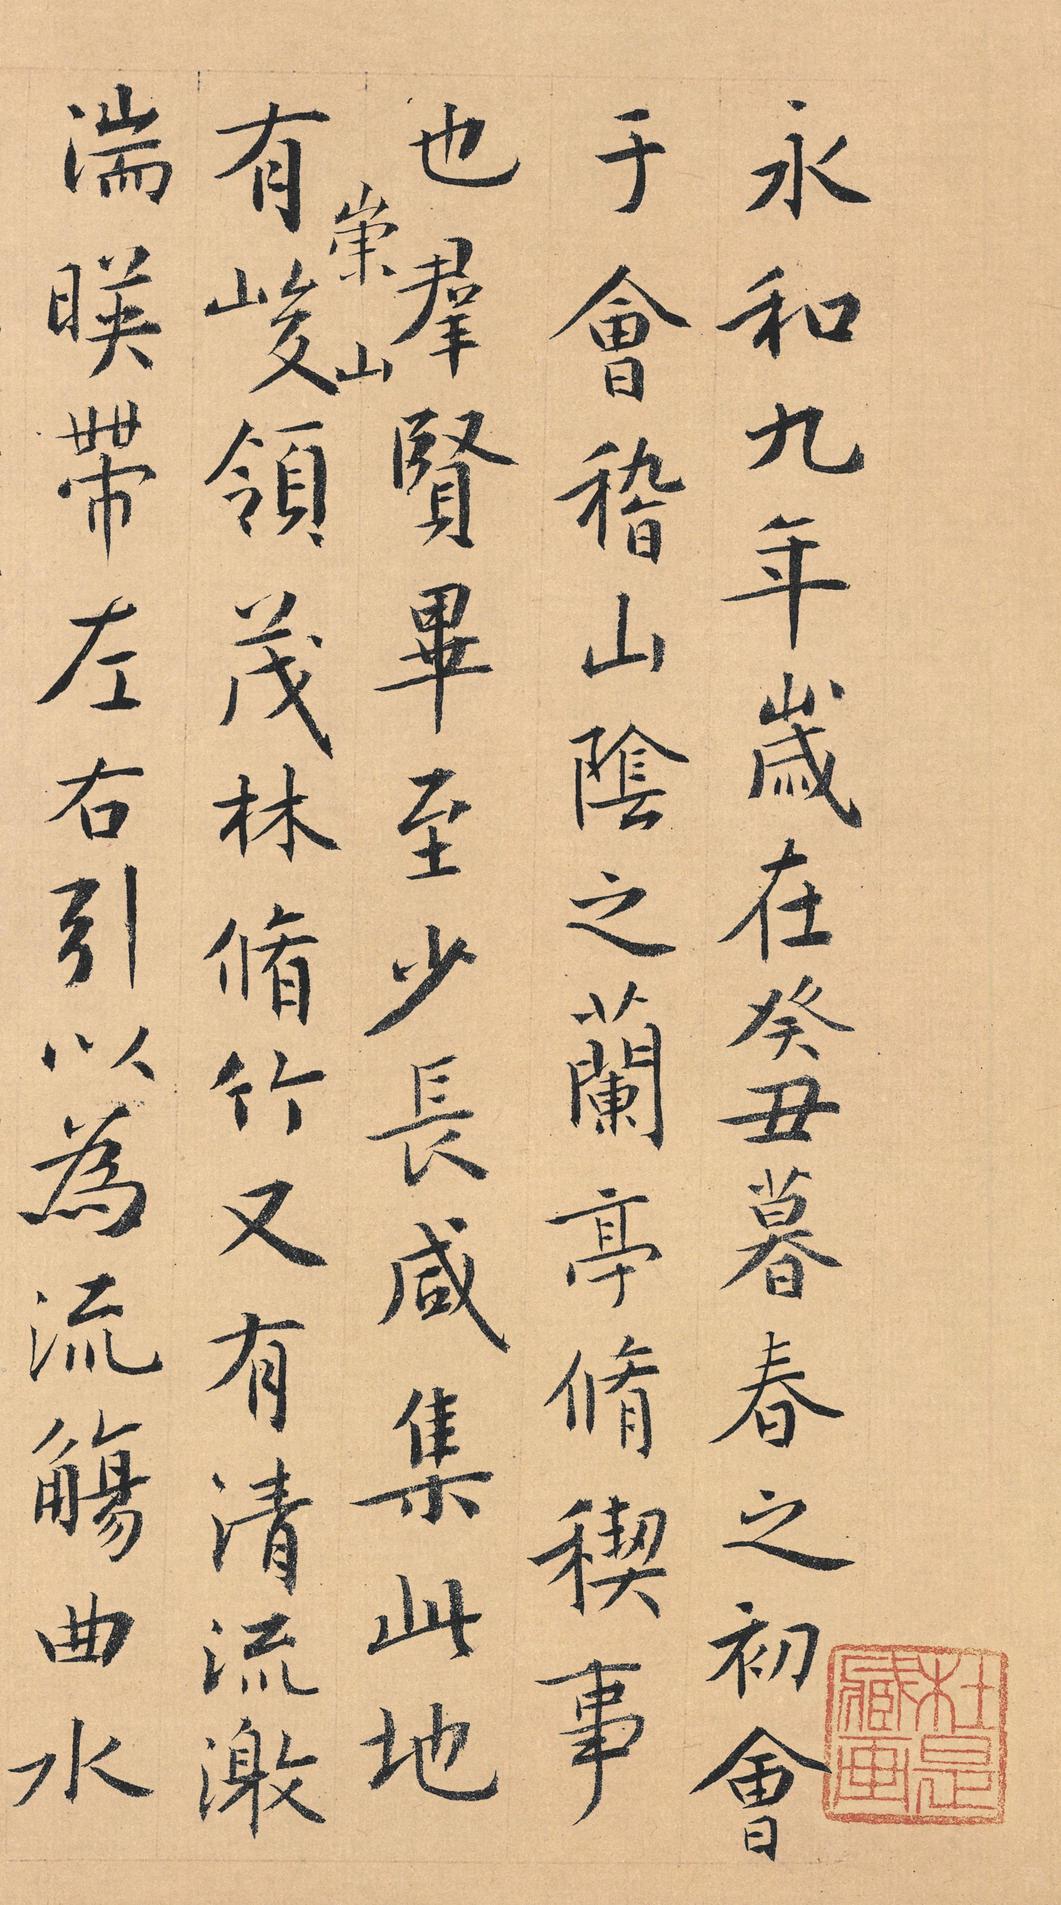 永和九年歲在癸丑暮春之初會
于會稽山陰之蘭亭脩稧事
也羣賢畢至少長咸集此地
崇山
有峻領茂林脩竹又有清流激
湍暎帶左右引以為流觴曲水
杜是
藏畫